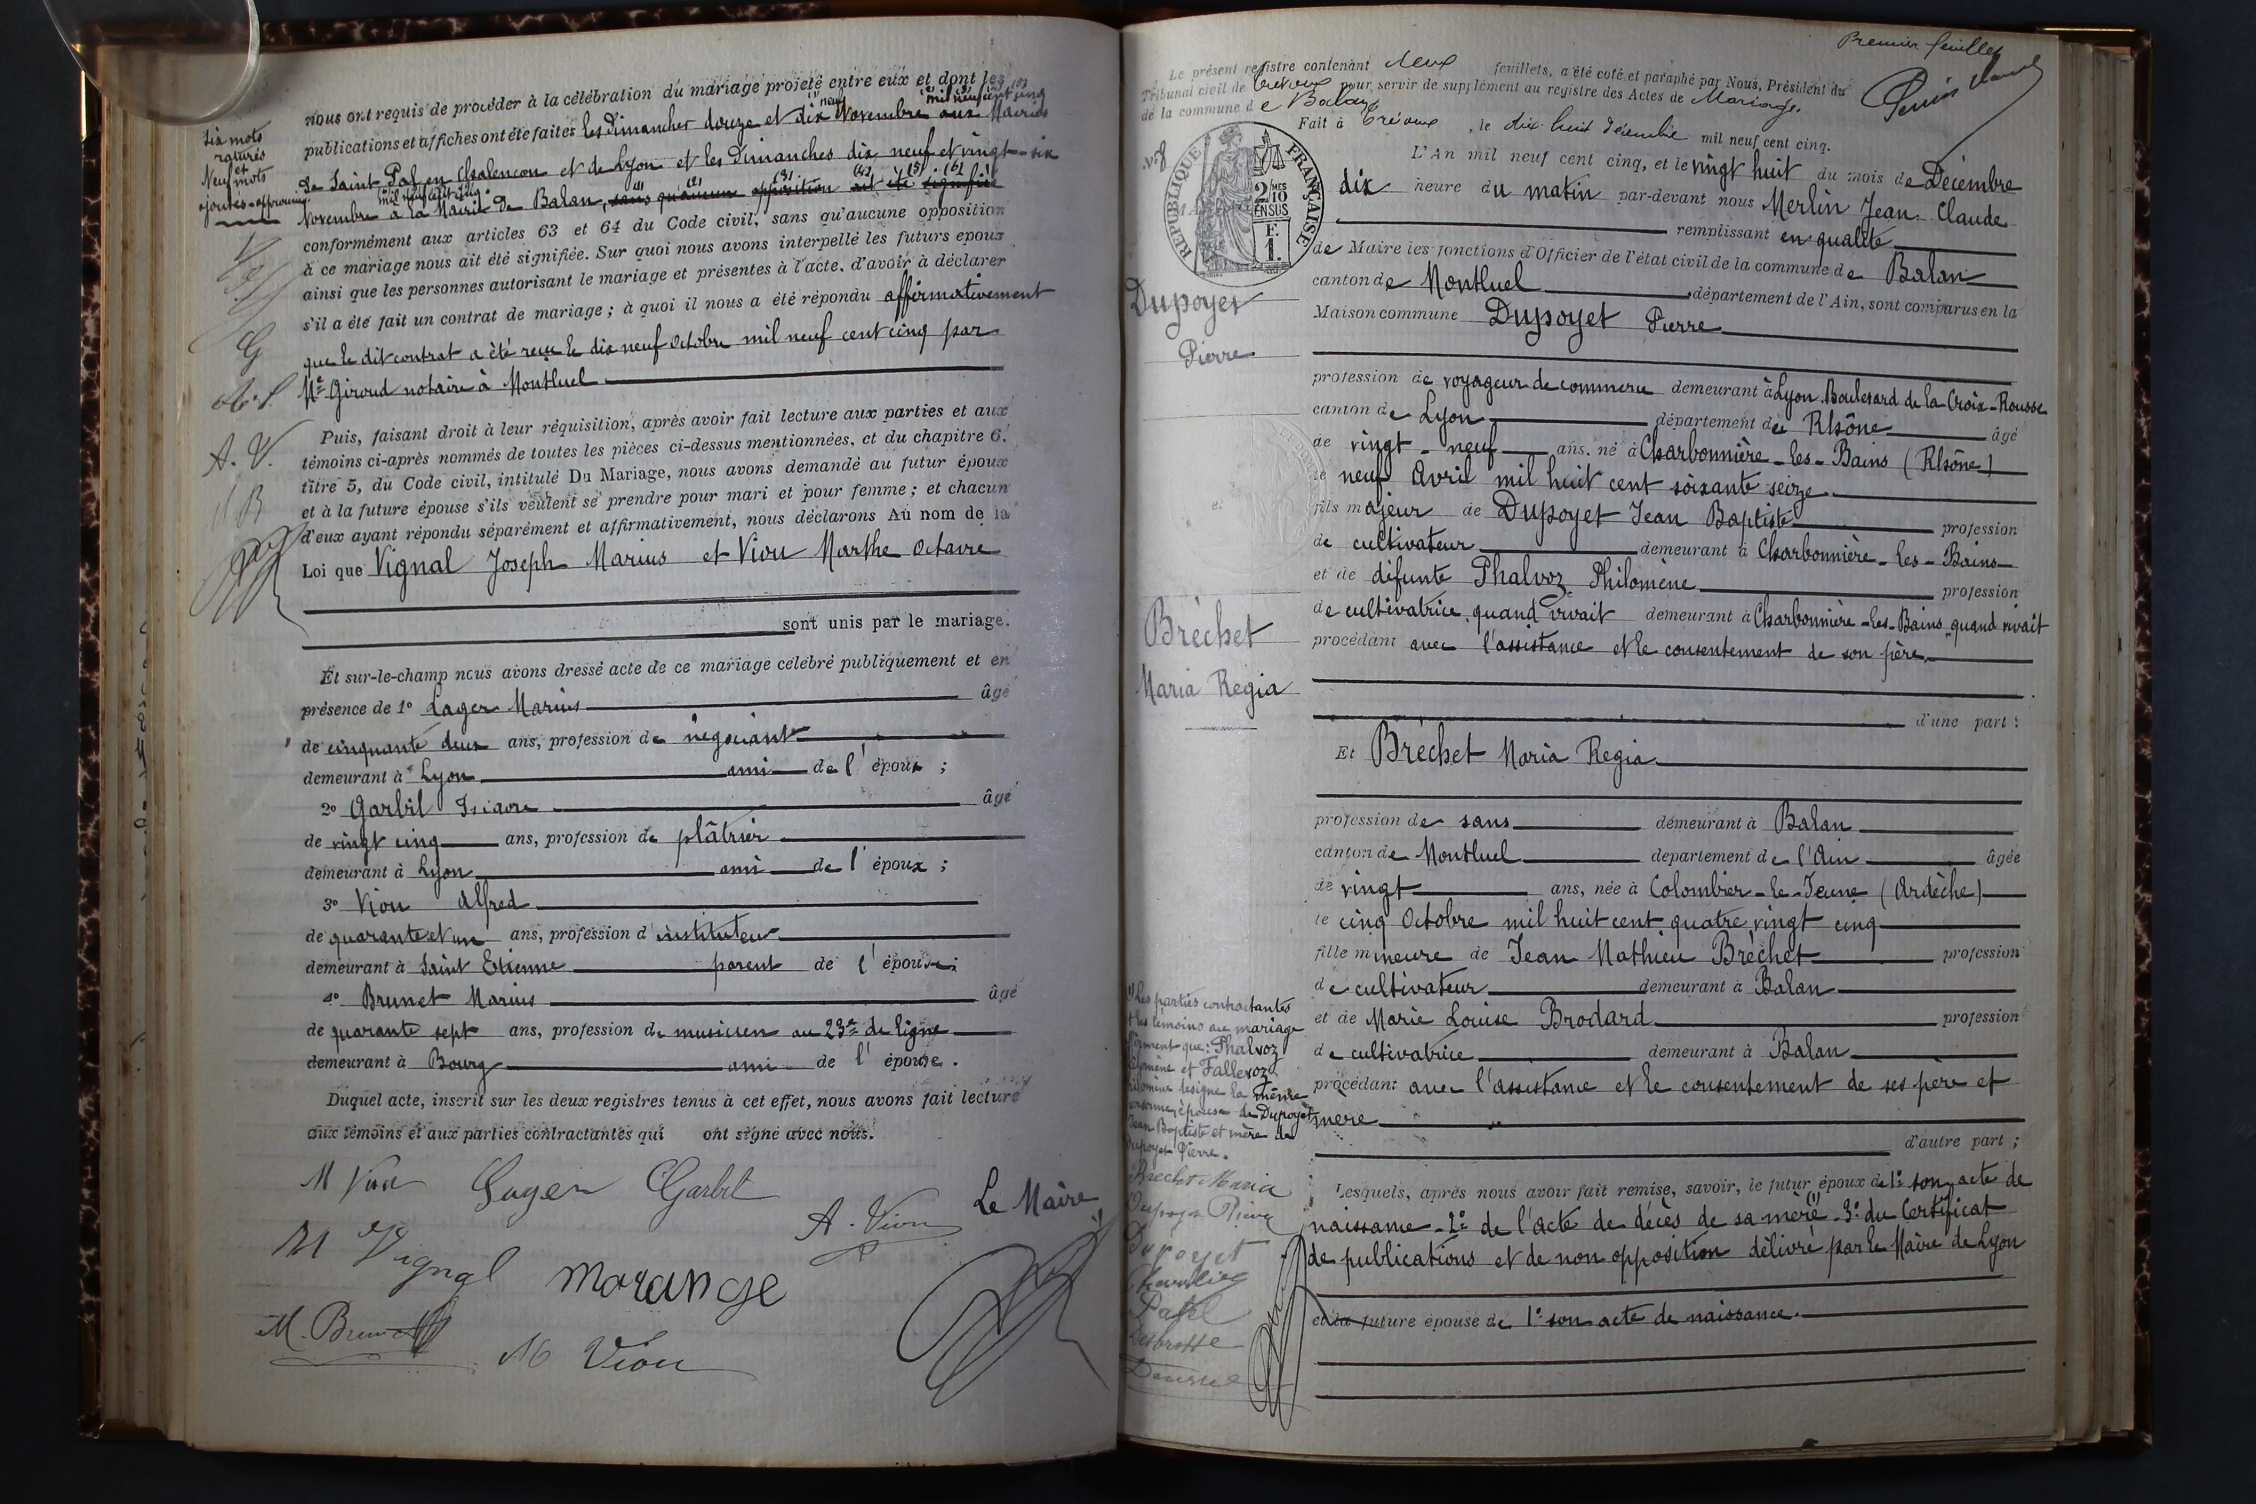 nous ont requis de procéder à la célébration du mariage projeté entre eux et dont les
publications et affiches ont été faites les dimanches douze et dix neuf Novembre mil neuf cent cinq aux Mairies
de Saint Pal en Chalencon et de Lyon et les Dimanches dix neuf et vingt-six
Novembre mil neuf cent cinq à la Mairie de Balan, sans qu'aucune opposition ait été signifiée
conformément aux articles 63 et 64 du Code civil, sans qu'aucune opposition
à ce mariage nous ait été signifiée. Sur quoi nous avons interpellé les futurs époux
ainsi que les personnes autorisant le mariage et présentes à l'acte, d'avoir à déclarer
s'il a été fait un contrat de mariage ; à quoi il nous a été répondu affirmativement
que le dit contrat a été reçu le dix neuf Octobre mil neuf cent cinq par
Me Giroud notaire à Montluel
Six mots
raturés
et
Neuf mots
ajoutés approuvés
G
A. V.
Puis, faisant droit à leur réquisition, après avoir fait lecture aux parties et aux
témoins ci-après nommés de toutes les pièces ci-dessus mentionnées, et du chapitre 6.
titre 5, du Code civil, intitulé Du Mariage, nous avons demandé au futur époux
et à la future épouse s'ils veulent se prendre pour mari et pour femme ; et chacun
d'eux ayant répondu séparément et affirmativement, nous déclarons Au nom de la
Loi que Vignal Joseph Marius et Viou Marthe Octavie
sont unis par le mariage.
Et sur-le-champ nous avons dressé acte de ce mariage célébré publiquement et en
présence de 1º Lager Marius âgé
de cinquante deux ans, profession de négociant
demeurant à Lyon ami de l'époux ;
2º Garbil âgé
de vingt cinq ans, profession de plâtrier
demeurant à Lyon ami de l'époux ;
3º Viou Alfred
de quarante et un ans, profession d'instituteur
demeurant à Saint Etienne parent de l'épouse ;
4º Brunet Marius âgé
de quarante sept ans, profession de musicien au 23e de ligne
demeurant à Bourg ami de l'épouse.
Duquel acte, inscrit sur les deux registres tenus à cet effet, nous avons fait lecture
aux témoins et aux parties contractantes qui ont signé avec nous.
M Viou Lager Garbil
A. Viou Le Maire
M Vignal morange
M. Brunet M Viou
Premier feuillet
Le présent registre contenant deux feuillets, a été coté et paraphé par Nous, Président du
Tribunal civil de Trévoux pour servir de supplément au registre des Actes de Mariage
de la commune de Balan
Fait à Trévoux, le dix-huit décembre mil neuf cent cinq.
RÉPUBLIQUE FRANÇAISE
2/10 MES
EN SUS
F.
1.
L'An mil neuf cent cinq, et le vingt huit du mois de Décembre
dix heure du matin par-devant nous Merlin Jean Claude
remplissant en qualité
de Maire les fonctions d'Officier de l'état civil de la commune de Balan
canton de Montluel, département de l'Ain, sont comparus en la
Maison commune Dupoyet Pierre
Dupoyet
Pierre
profession de voyageur de commerce demeurant à Lyon Boulevard de la Croix-Rousse
canton de Lyon département du Rhône âgé
de vingt-neuf ans, né à Charbonnière-les-Bains (Rhône)
le neuf Avril mil huit cent soixante seize
fils majeur de Dupoyet Jean Baptiste profession
de cultivateur demeurant à Charbonnière-les-Bains
et de défunte Phalvoz Philomène profession
de cultivatrice quand vivait demeurant à Charbonnière-les-Bains quand vivait
procédant avec l'assistance et le consentement de son père
d'une part :
Bréchet
Maria Regia
Et Bréchet Maria Regia
profession de sans demeurant à Balan
canton de Montluel département de l'Ain âgée
de vingt ans, née à Colombier-le-Jeune (Ardèche)
le cinq Octobre mil huit cent quatre vingt cinq
fille mineure de Jean Mathieu Bréchet profession
de cultivateur demeurant à Balan
et de Marie Louise Brodard profession
de cultivatrice demeurant à Balan
procédant avec l'assistance et le consentement de ses père et
mère
d'autre part ;
Lesquels, après nous avoir fait remise, savoir, le futur époux de 1º son acte de
naissance - 2º de l'acte de décès de sa mère (1) - 3º du Certificat
de publications et de non opposition délivré par le Maire de Lyon
et la future épouse de 1º son acte de naissance.
(1) Les parties contractantes
et les témoins au mariage
affirment que : Phalvoz
Philomène et Fallevoz
Philomène désigne la même
personne, épouse de Dupoyet
Jean Baptiste et mère de
Dupoyet Pierre.
Brechet Maria
Dupoyet Pierre
Dupoyet